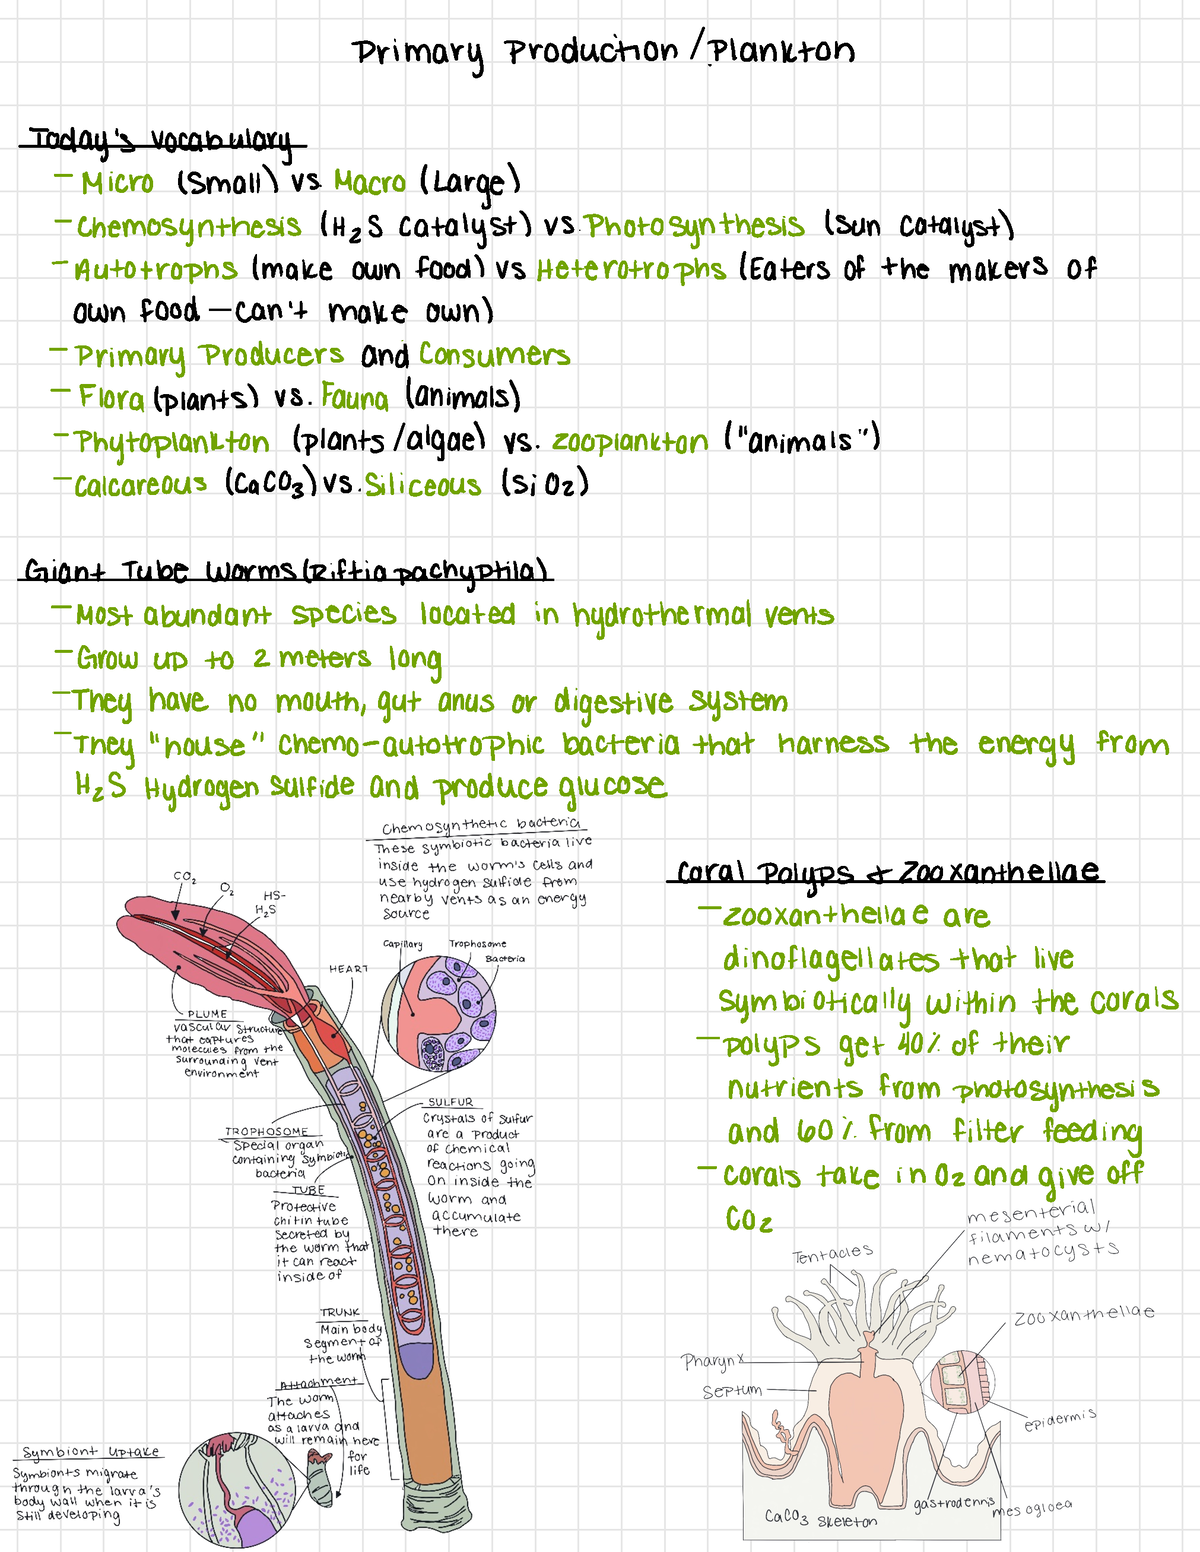 Primary Production / Plankton
Today's Vocabulary
- Micro (Small) vs Macro (Large)
- Chemosynthesis (H₂S Catalyst) vs. Photosynthesis (Sun Catalyst)
- Autotrophs (make own food) vs Heterotrophs (Eaters of the makers of
own food — can't make own)
- Primary Producers and Consumers
- Flora (plants) vs. Fauna (animals)
- Phytoplankton (plants/algae) vs. Zooplankton ("animals")
- Calcareous (CaCO₃) vs. Siliceous (SiO₂)
Giant Tube Worms (Riftia pachyptila)
- Most abundant species located in hydrothermal vents
- Grow up to 2 meters long
- They have no mouth, gut anus or digestive system
- They "house" chemo-autotrophic bacteria that harness the energy from
H₂S Hydrogen Sulfide and produce glucose
Chemosynthetic bacteria
These symbiotic bacteria live
inside the worm's cells and
use hydrogen sulfide from
nearby vents as an energy
source
CO₂
O₂
HS-
H₂S
HEART
Capillary
Trophosome
Bacteria
PLUME
vascular structure
that captures
molecules from the
surrounding vent
environment
TROPHOSOME
Special organ
containing symbiotic
bacteria
SULFUR
Crystals of sulfur
are a product
of chemical
reactions going
on inside the
worm and
accumulate
there
TUBE
Protective
chitin tube
secreted by
the worm that
it can react
inside of
TRUNK
Main body
segment of
the worm
Attachment
The worm
attaches
as a larva and
will remain here
for
life
Symbiont Uptake
Symbionts migrate
through the larva's
body wall when it is
still developing
Coral Polyps + Zooxanthellae
- Zooxanthellae are
dinoflagellates that live
symbiotically within the corals
- polyps get 40% of their
nutrients from photosynthesis
and 60% from filter feeding
- corals take in O₂ and give off
CO₂
mesenterial
filaments w/
nematocysts
Tentacles
Zooxanthellae
Pharynx
Septum
epidermis
gastrodermis
mesogloea
CaCO₃ skeleton